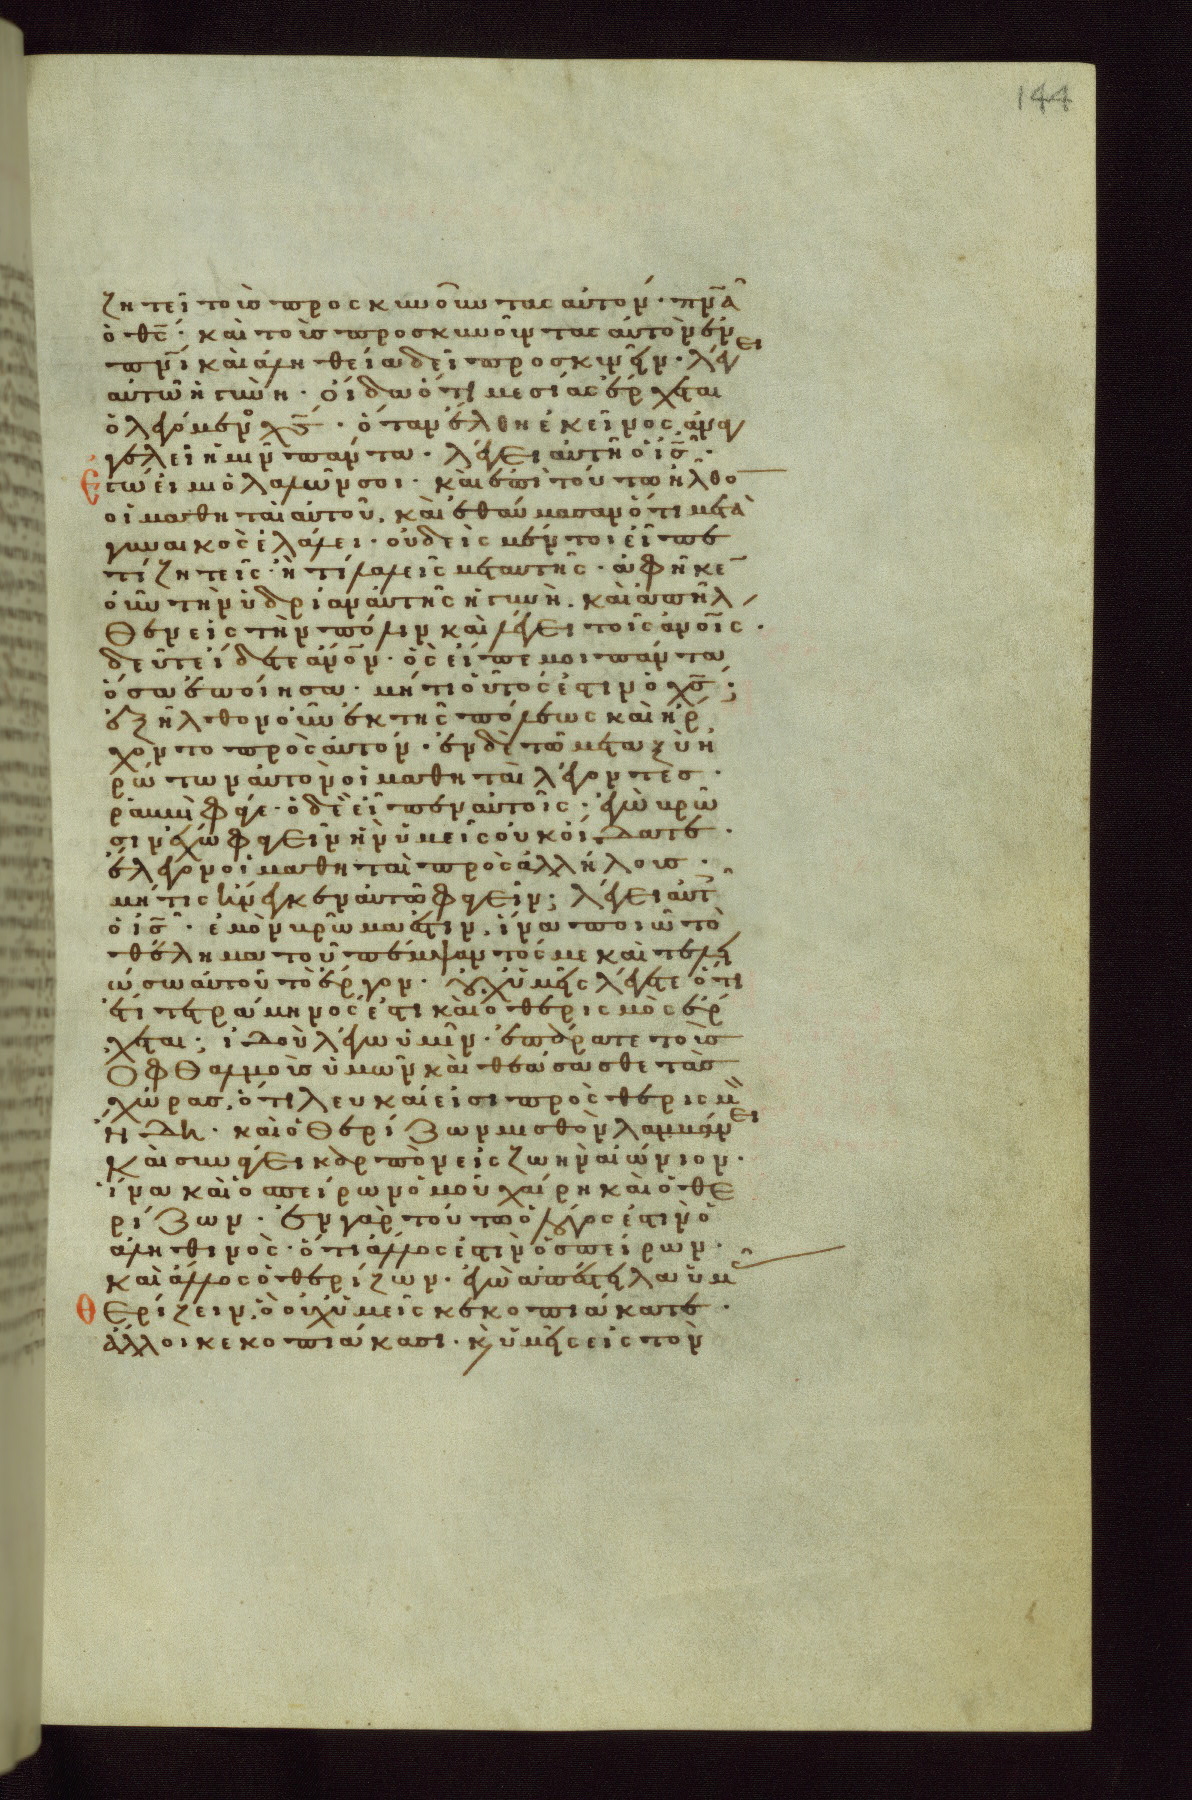 144
ζητεῖ τοὺς προσκυνοῦντας αὐτόν · πν̅ᾶ
ὁ θς̅ · καὶ τοὺς προσκυνοῦντας αὐτὸν ἐν
πν̅ὶ καὶ ἀληθεία δεῖ προσκυνεῖν · λέγει
αὐτῶ ἡ γυνὴ · οἶδα ὅτι μεσίας ἔρχεται
ὁ λεγόμενος χς̅ · ὅταν ἔλθη ἐκεῖνος, ἀναγ
γελεῖ ἡμῖν πάντα · λέγει αὐτῆ ὁ ις̅ ·
Ἐγώ εἰμι ὁ λαλῶν σοι · καὶ ἐπὶ τούτω ἦλθο
οἱ μαθηταὶ αὐτοῦ, καὶ ἐθαύμασαν ὅτι μετὰ
γυναικὸς ἐλάλει · οὐδεὶς μέντοι εἶπε
τί ζητεῖς · ἢ τί λαλεῖς μετ αυτῆς · ἀφῆκε
οὖν τὴν ὑδρίαν αὐτῆς ἡ γυνὴ, καὶ ἀπῆλ
θεν εἰς τὴν πόλιν καὶ λέγει τοῖς ἀνο̅ις ·
δεῦτε ἴδετε ἄνο̅ν · ὃς εἶπέ μοι πάντα
ὅσα ἐποίησα · μήτι οὗτός ἐστιν ὁ χς̅ ;
ἐξῆλθον οὖν ἐκ τῆς πόλεως καὶ ἤρ
χοντο πρὸς αὐτόν · ἐν δὲ τῶ μεταξὺ ἠ
ρώτων αὐτὸν οἱ μαθηταὶ λέγοντες ·
ῥαμμὶ φάγε · ὁ δὲ εἶπεν αὐτοῖς · ἐγὼ βρῶ
σιν ἔχω φαγεῖν ἣν ὑμεῖς οὐκ οἴδατε ·
ἔλεγον οἱ μαθηταὶ πρὸς ἀλλήλους ·
μήτις ἤνεγκεν αὐτῶ φαγεῖν ; λέγει αὐτ
ὁ ις̅ · ἐμὸν βρῶμα ἐστιν, ἵνα ποιῶ τὸ
θέλημα τοῦ πέμψαντός με καὶ τελει
ώσω αὐτοῦ τὸ ἔργον · οὐχ ὑμεῖς λέγετε ὅτι
ἔτι τετράμηνος ἐστι καὶ ὁ θερισμὸς ἔρ
χεται ; ἰδοὺ λέγω ὑμῖν · ἐπάρατε τοὺς
ὀφθαλμοὺς ὑμῶν καὶ θεάσασθε τὰς
χώρας, ὅτι λευκαί εἰσι πρὸς θερισμὸ
ἤδη · καὶ ὁ θερίζων μισθὸν λαμβάνει
καὶ συνάγει καρπὸν εἰς ζωὴν αἰώνιον ·
ἵνα καὶ ὁ σπείρων ὁμοῦ χαίρη καὶ ὁ θε
ρίζων · ἐν γὰρ τούτω ὁ λόγος ἐστὶν ὁ
ἀληθινὸς · ὅτι ἄλλος ἐστὶν ὁ σπείρων ·
καὶ ἄλλος ὁ θερίζων · ἐγὼ ἀπέστειλα ὑμᾶς
Θερίζειν, ὃ οὐχ ὑμεῖς κεκοπιάκατε ·
ἄλλοι κεκοπιάκασι · κ ὑμεῖς εἰς τὸν